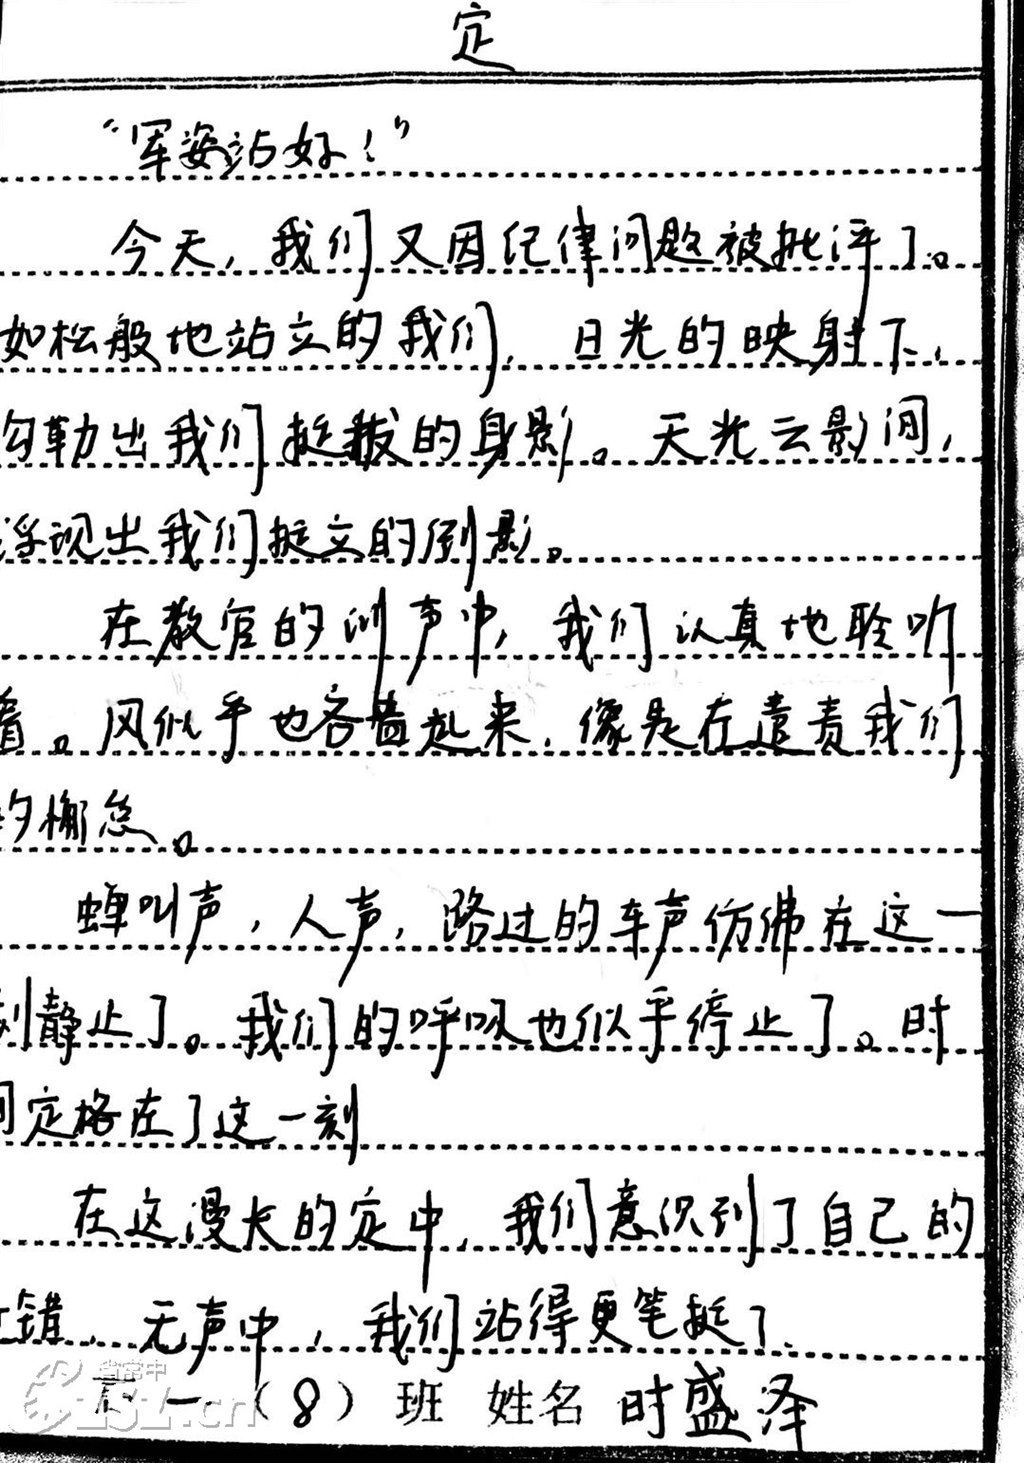 定
“军姿站好！”
今天，我们又因纪律问题被批评了。
如松般地站立的我们，日光的映射下，
勾勒出我们挺拔的身影。天光云影间，
浮现出我们挺立的倒影。
在教官的训声中，我们认真地聆听
着。风似乎也吝啬起来，像是在谴责我们
的懈怠。
蝉叫声，人声，路过的车声仿佛在这一
刻静止了。我们的呼吸也似乎停止了。时
间定格在了这一刻
在这漫长的定中，我们意识到了自己的
错，无声中，我们站得更笔挺了.
高一（8）班 姓名 时盛泽
省常中